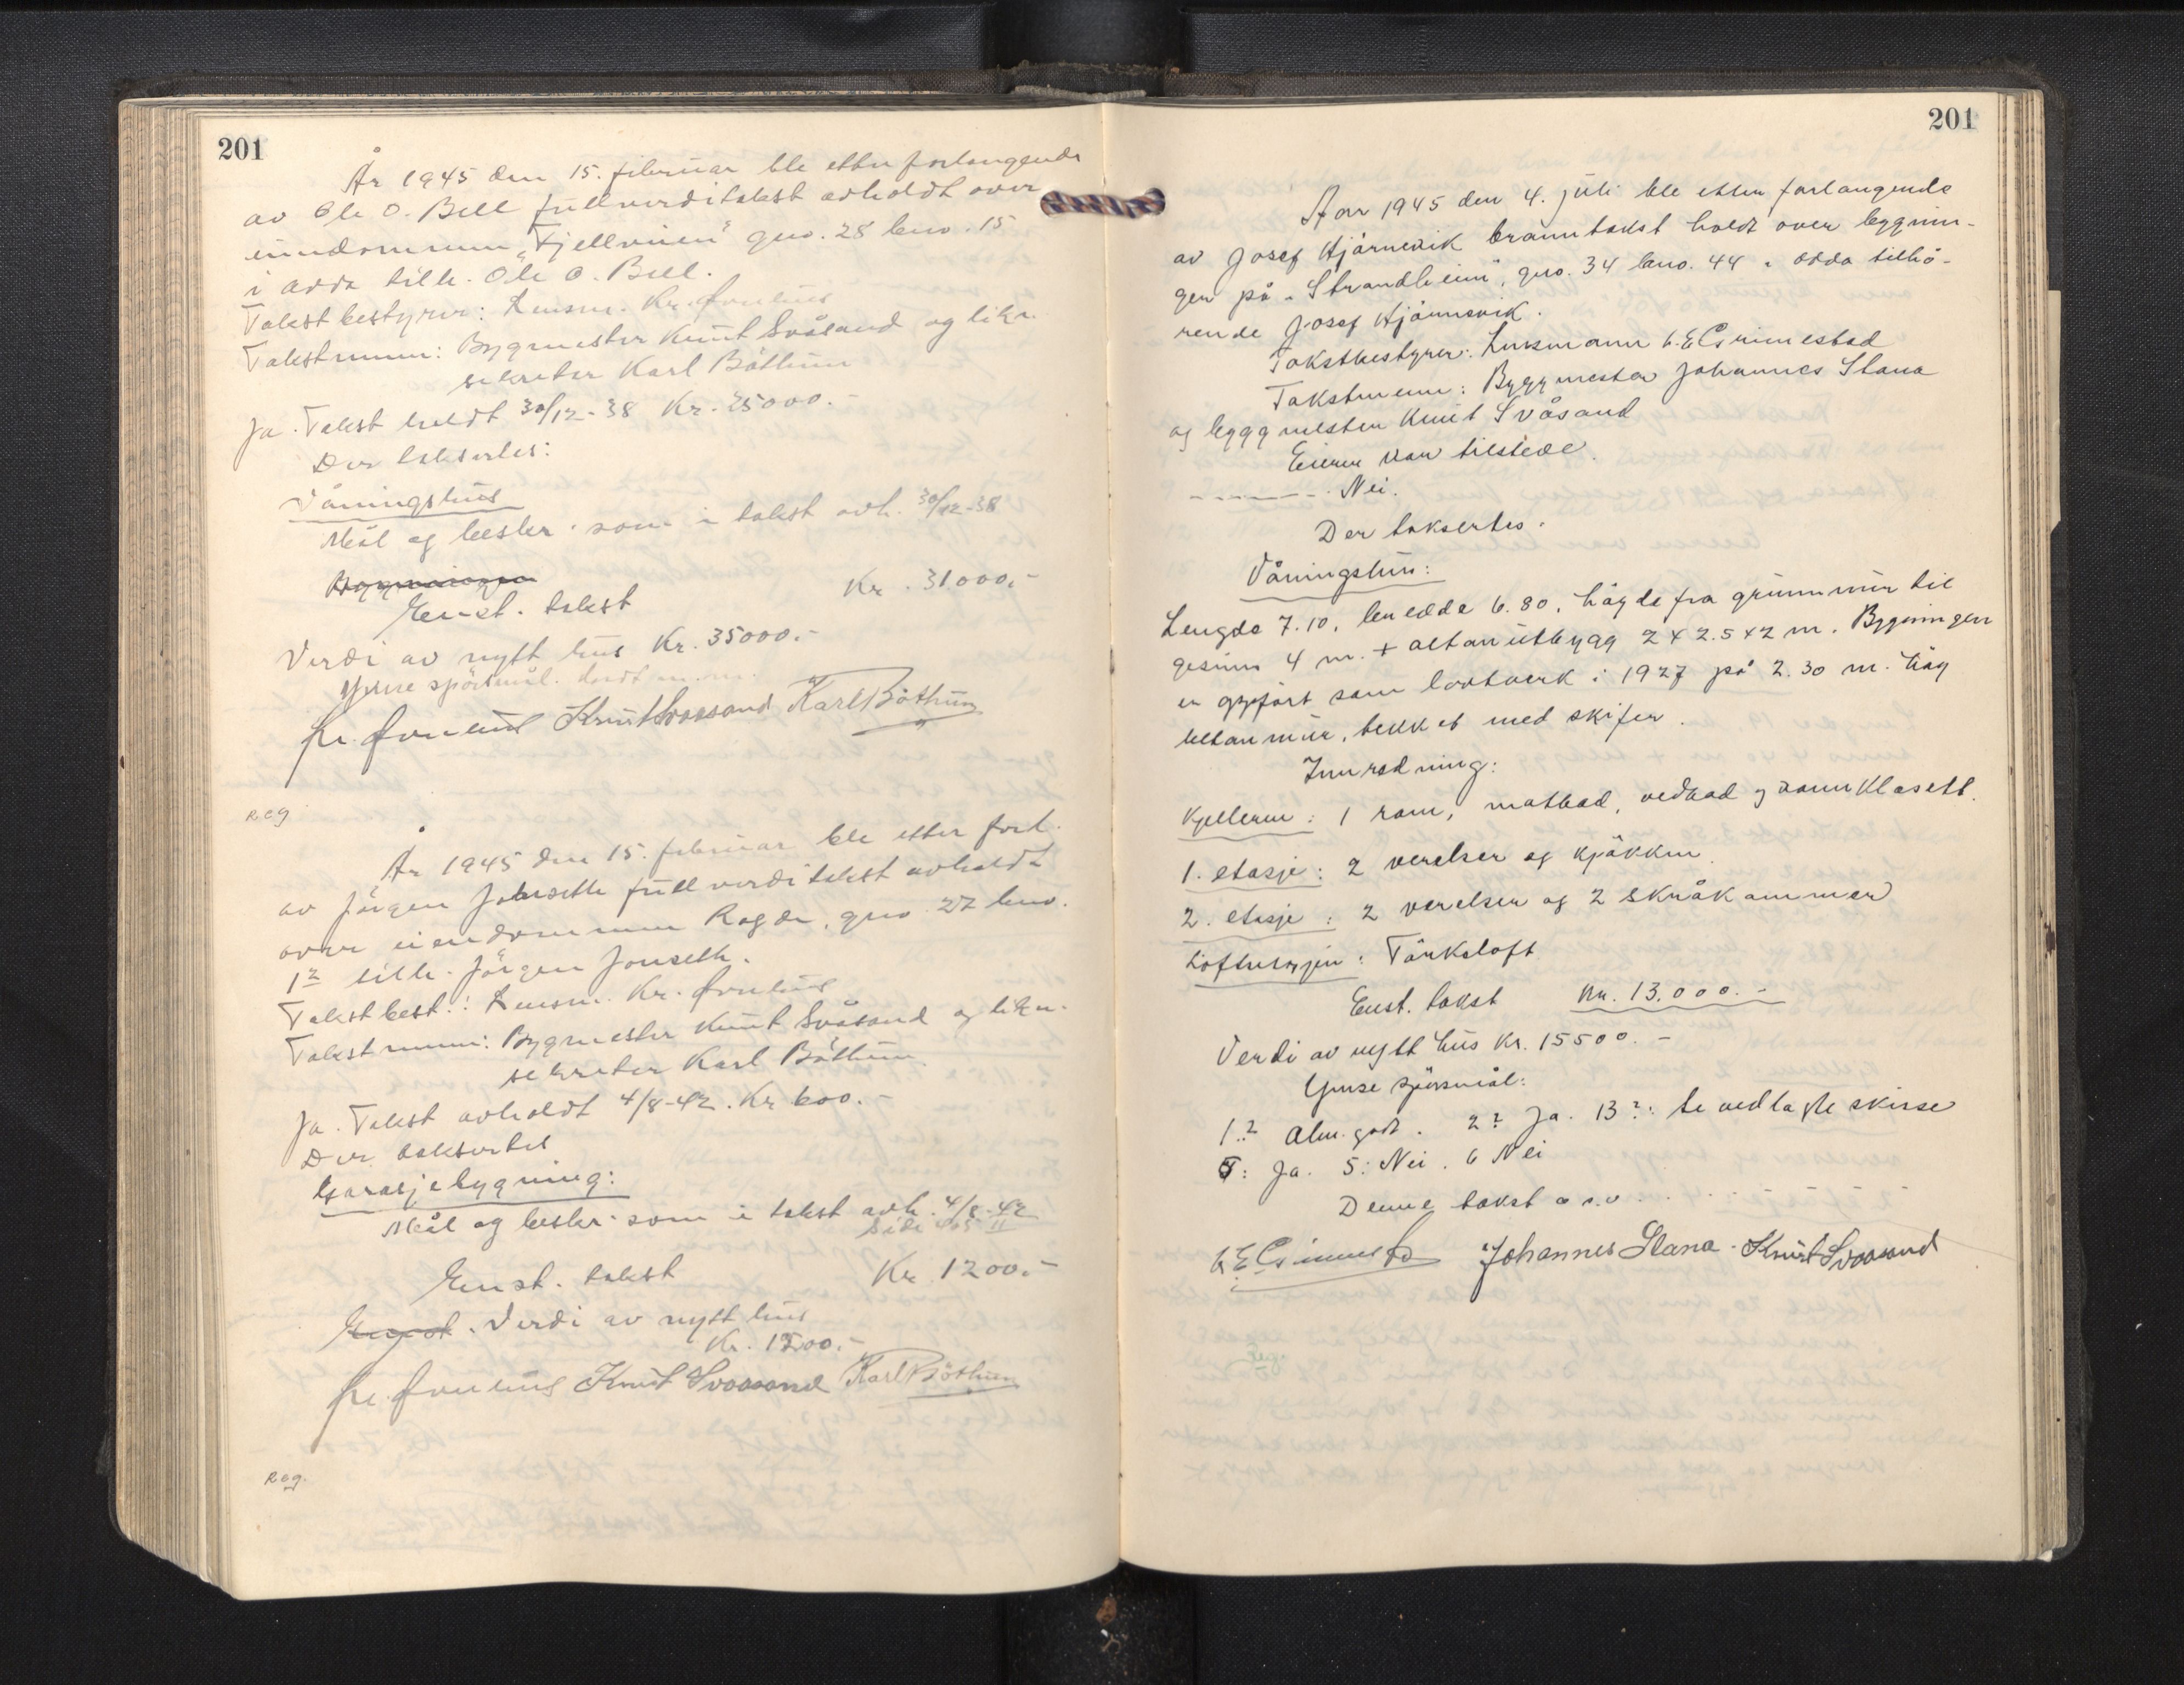 201
År 1945 den 15. februar ble etter forlangende
av Ole O. Bell fullverditakst avholdt over
eiendommen "Fjellvüen" gno. 28 bno. 15
i Odda tilh. Ole O. Bell.
Takstbestyrer: Lensm. Kr.
Takstmenn: Bygmester Knut Svåsand og likn.
sekretær Karl Böthun
Ja. Takst holdt 30/12-38 Kr. 25000.-
Der takseres:
Våningshus
Mål og beskr. som i takst avh. 30/12-38
Bygningen
Enst. takst Kr. 31000.-
Verdi av nytt hus Kr. 35000.-
Ymse spörsmål. Godt m.m.
Knut Svaasand Karl Böthun
Reg
År 1945 den 15. februar ble etter forl.
av Jörgen Jonseth fullverditakst avholdt
over eiendommen Ragde, gno. 27 bno.
12 tilh. Jörgen Jonseth.
Takstbest.: Lensm. Kr.
Takstmenn: Bygmester Knut Svåsand og likn.
sekretær Karl Böthun
Ja. Takst avholdt 4/8-42. Kr 600.-
Der taksertes
Garasjebygning:
Mål og beskr. som i takst avh. 4/8-42
Side
Enst. takst Kr. 1200.-
Verdi av nytt hus
Kr. 1500.-
Knut Svaasand Karl Böthun
Reg.
201
Aar 1945 den 4. juli ble etter forlangende
av Josef Hjörnevik branntakst holdt over bygnin-
gen på "Strandheim", gno. 34 bno. 44 i Odda tilhö-
rende Josef Hjörnevik.
Takstbestyrer: Lensmann G. E. Grimestad
Takstmenn: Byggmester Johannes Slana
og byggmester Knut Svåsand
Eieren var tilstede.
- - - - - Nei.
Der taksertes.
Våningshus:
Lengde 7.10, bredde 6.80, högde fra grunnmur til
gesims 4 m. + altanutbygg 2 x 2.5 x 2 m. Bygningen
er oppfört som lovtverk i 1927 på 2.30 m. hög
betonmur, tekket med skifer.
Innredning:
Kjelleren: 1 rom, matbod, vedbod og vannklosett.
1. etasje: 2 værelser og kjökken.
2. etasje: 2 værelser og 2 skråkammer
Loftsetasjen: Törkeloft
Enst. takst Kr. 13.000.-
Verdi av nytt hus Kr. 15500.-
Ymse spörsmål:
1? Alm. godt. 2? Ja. 13?: Se vedlagte skisse
Ja. 5: Nei. 6 Nei
Denne takst o.s.v. . . . .
G E Grimestad Johannes Slana Knut Svaasand
Reg.